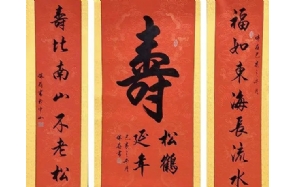 福如東海長流水
壽
松鶴
延年
壽比南山不老松